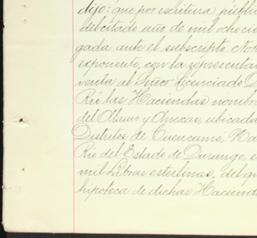 dijo: que por escritura públic
del citado año de mil ochocien
gada ante el subscripto No
exponente, con la representa
venta al Señor Licenciado D
Rio las Haciendas nombra
del Alamo y ubicada
Distritos de Cuencamé, Na
Rio del Estado de Durango, e
mil libras esterlinas, del qu
hipoteca de dichas Haciend